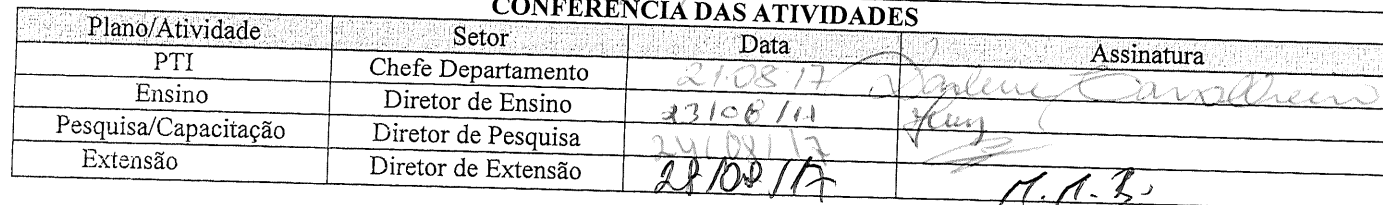 CONFERÊNCIA DAS ATIVIDADES
Plano/Atividade Setor Data Assinatura
PTI Chefe Departamento 21.08.17 Darlene
Ensino Diretor de Ensino 23/08/17
Pesquisa/Capacitação Diretor de Pesquisa 24/08/17
Extensão Diretor de Extensão 28/08/17